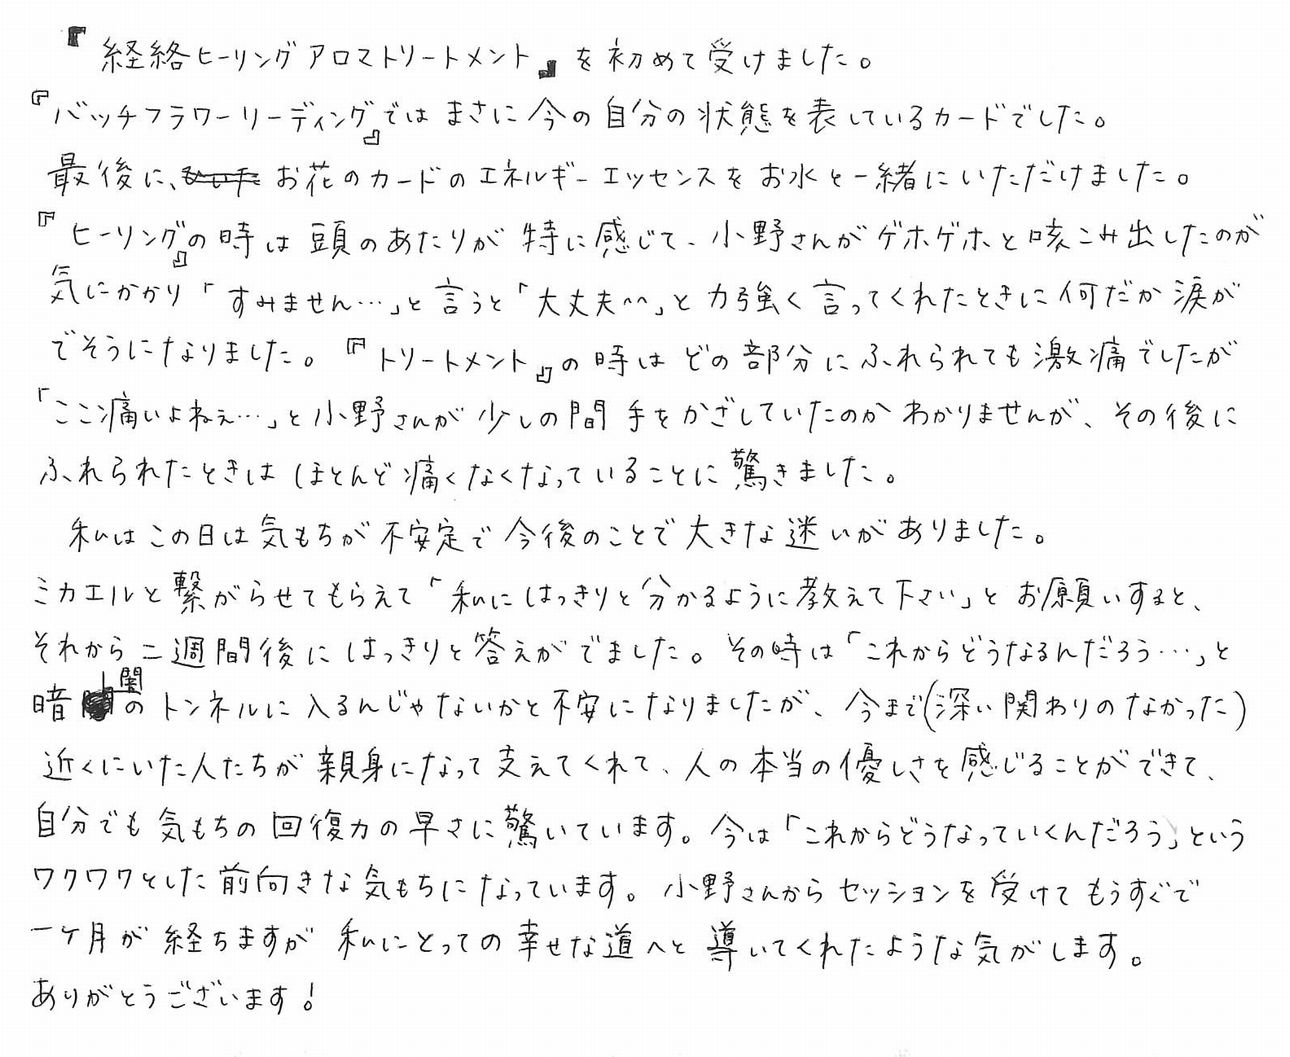 『経絡ヒーリングアロマトリートメント』を初めて受けました。
『バッチフラワーリーディング』ではまさに今の自分の状態を表しているカードでした。
最後に、お花のカードのエネルギーエッセンスをお水と一緒にいただけました。
『ヒーリング』の時は頭のあたりが特に感じて、小野さんがゲホゲホと咳こみ出したのが
気にかかり「すみません…」と言うと「大丈夫^^」と力強く言ってくれたときに何だか涙が
でそうになりました。『トリートメント』の時はどの部分にふれられても激痛でしたが
「ここ痛いよねぇ…」と小野さんが少しの間手をかざしていたのかわかりませんが、その後に
ふれられたときはほとんど痛くなくなっていることに驚きました。
私はこの日は気もちが不安定で今後のことで大きな迷いがありました。
ミカエルと繋がらせてもらえて「私にはっきりと分かるように教えて下さい」とお願いすると、
それから二週間後にはっきりと答えがでました。その時は「これからどうなるんだろう…」と
暗闇のトンネルに入るんじゃないかと不安になりましたが、今まで(深い関わりのなかった)
近くにいた人たちが親身になって支えてくれて、人の本当の優しさを感じることができて、
自分でも気もちの回復力の早さに驚いています。今は「これからどうなっていくんだろう」という
ワクワクとした前向きな気もちになっています。小野さんからセッションを受けてもうすぐで
一ケ月が経ちますが私にとっての幸せな道へと導いてくれたような気がします。
ありがとうございます!